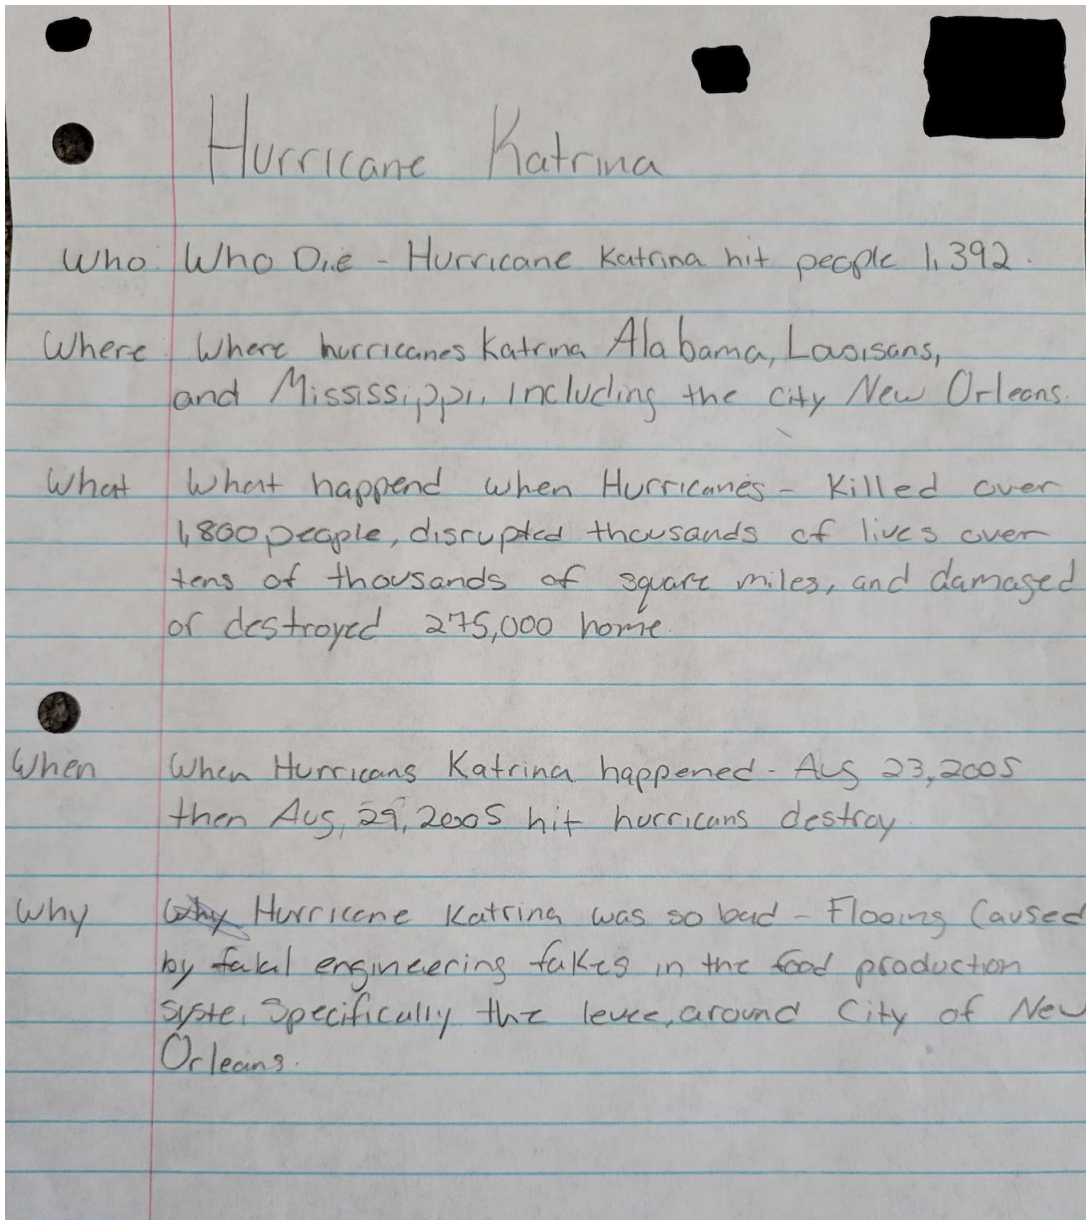 Hurricane Katrina
Who Who Die - Hurricane Katrina hit people 1,392.
Where Where hurricanes Katrina Alabama, Laoisans,
and Mississippi, including the city New Orleans.
What What happend when Hurricanes - Killed over
1,800 people, disrupted thousands of lives over
tens of thousands of square miles, and damaged
or destroyed 275,000 home.
When When Hurricans Katrina happened - Aug 23, 2005
then Aug, 29, 2005 hit hurricans destroy.
Why Why Hurricane Katrina was so bad - Flooing Caused
by fakal engineering fakes in the food production
syste. Specifically the levee, around City of New
Orleans.